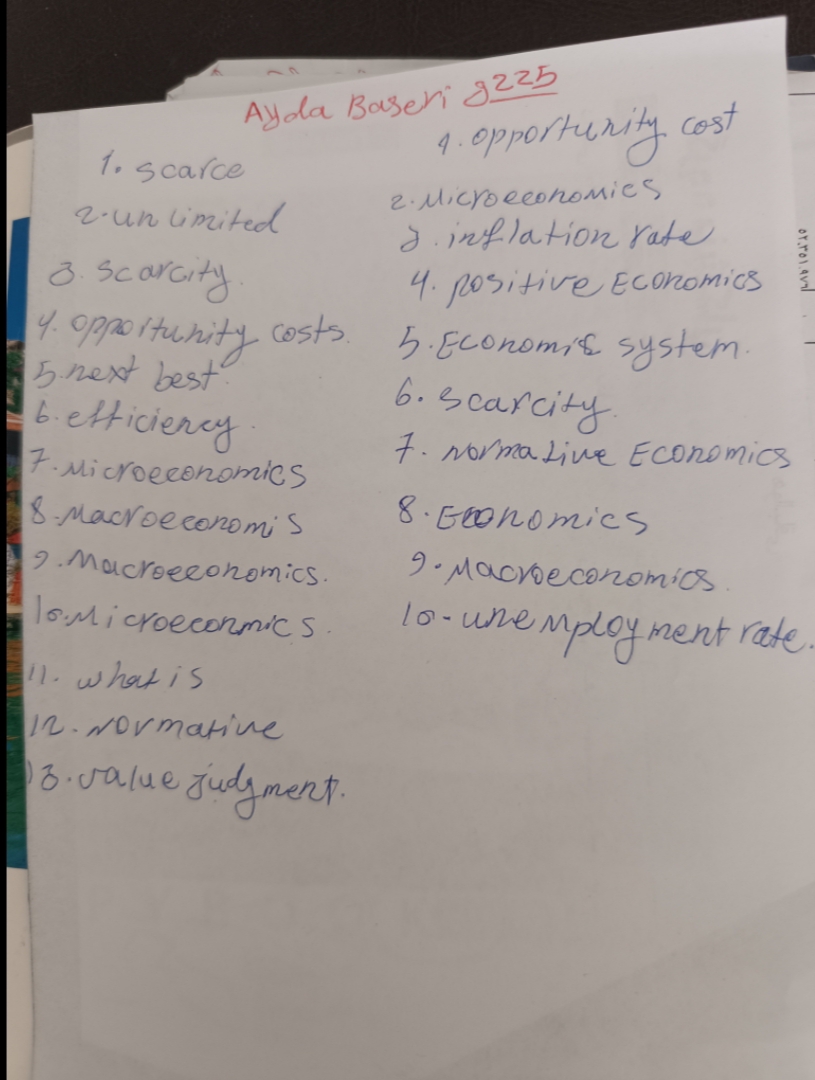 Ayda Baseri g225
1. scarce
2. unlimited
3. scarcity.
4. opportunity costs.
5. next best.
6. efficiency.
7. Microeconomics
8. Macroeconomis
9. Macroeconomics.
10. Microeconmics.
11. what is
12. Normative
13. value judgment.
1. opportunity cost
2. Microeconomics
3. inflation rate
4. positive Economics
5. Economic system.
6. scarcity.
7. normative Economics
8. Economics
9. Macroeconomics.
10- unemployment rate.